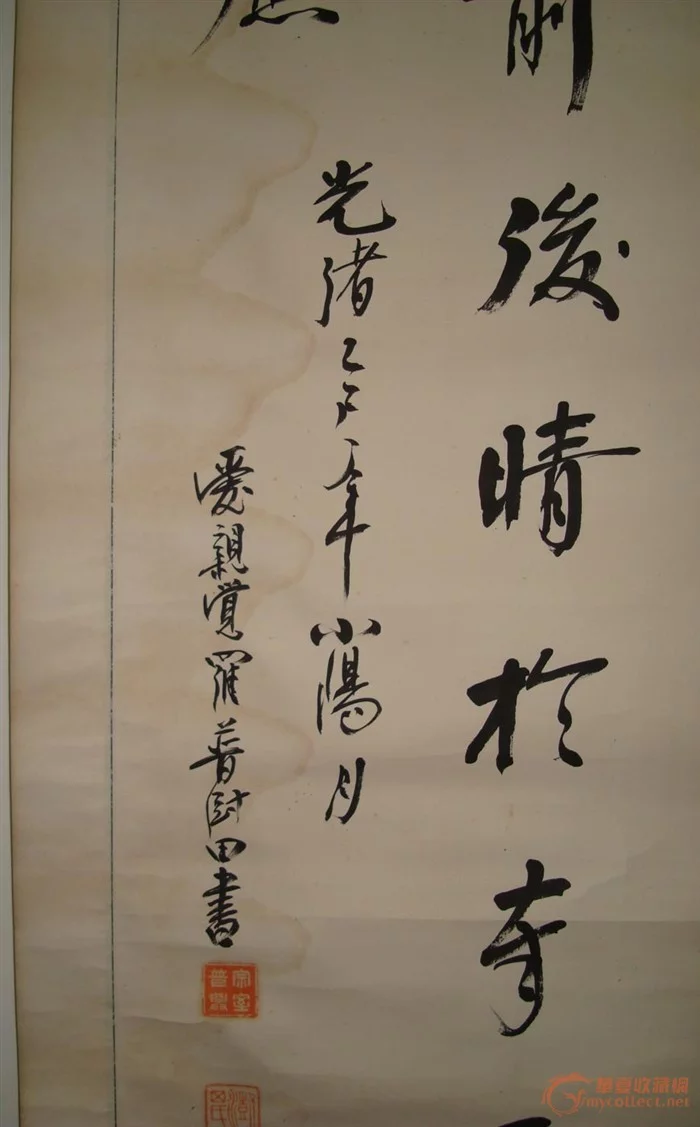 後晴於奇
光緒乙亥年小陽月
愛親覺羅普田書
宗室普
華夏收藏網
mycollect.net